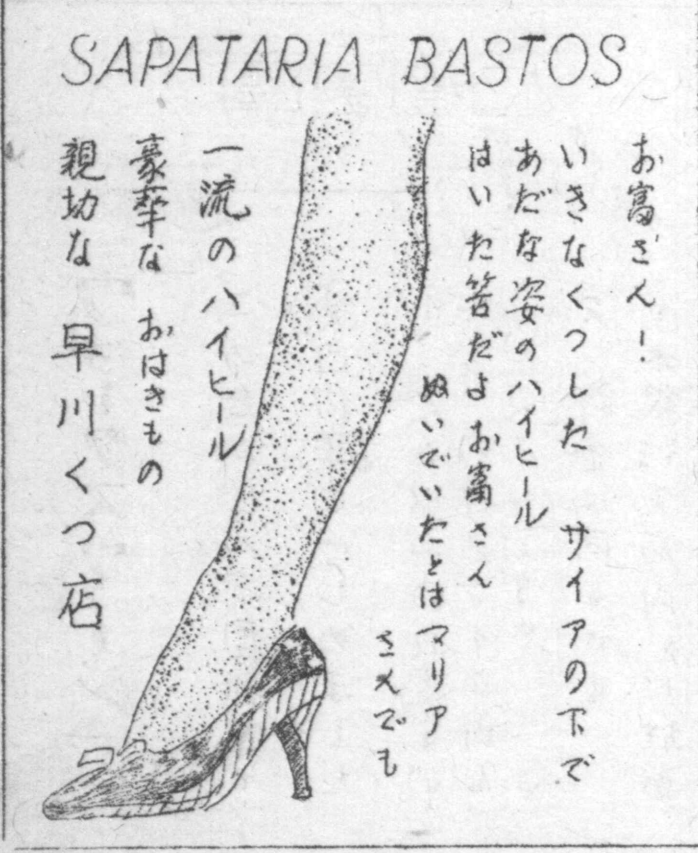 SAPATARIA BASTOS
お富さん!
いきなくつした サイアの下で
あだな姿のハイヒール
はいた筈だよ お富さん
ぬいでいたとはマリア
さんでも
一流のハイヒール
豪華な おはきもの
親切な 早川くつ店